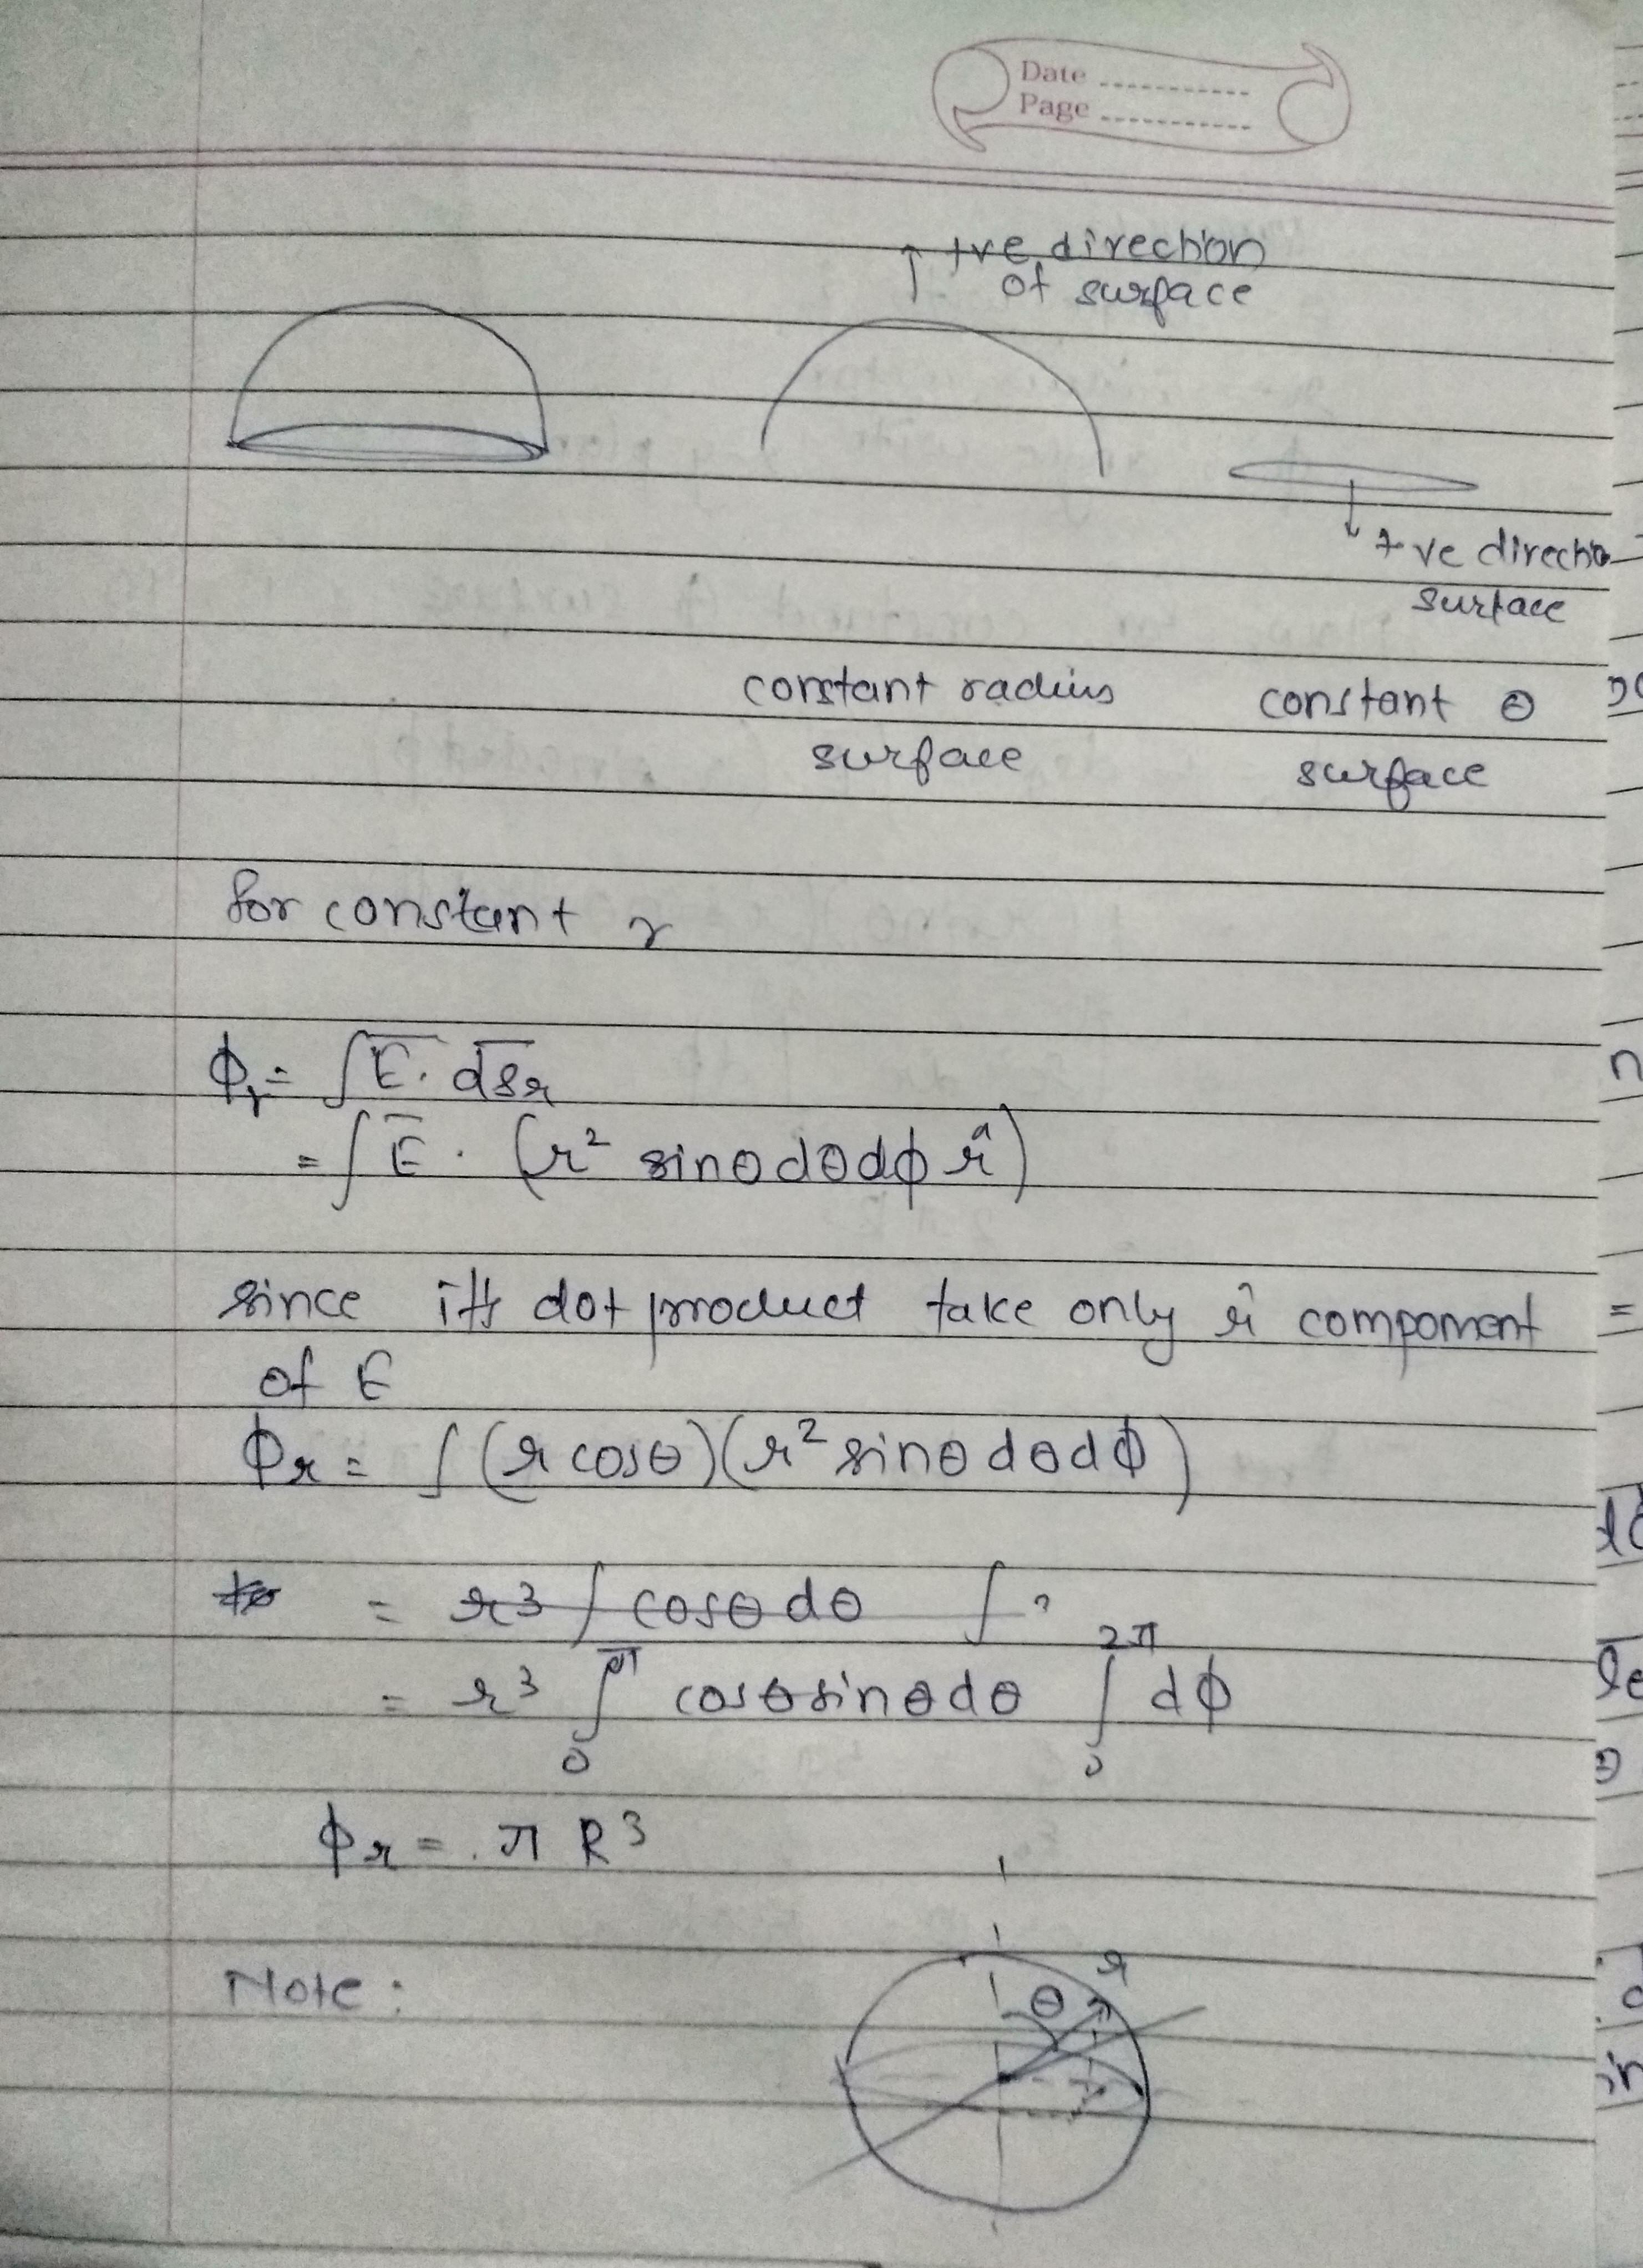 Date
Page
+ve direction
of surface
+ve directio
surface
constant radius
surface
constant θ
surface
for constant r
ϕr = ∫E̅. d̅s̅r
= ∫E̅ . (r² sinθdθdϕ r̂)
since it's dot product take only r̂ component
of E
ϕr = ∫(r cosθ)(r² sinθdθdϕ)
= r³ ∫ cosθ dθ ∫
= r³ ∫₀^π cosθ sinθ dθ ∫₀^2π dϕ
ϕr = π R³
Note:
r
θ